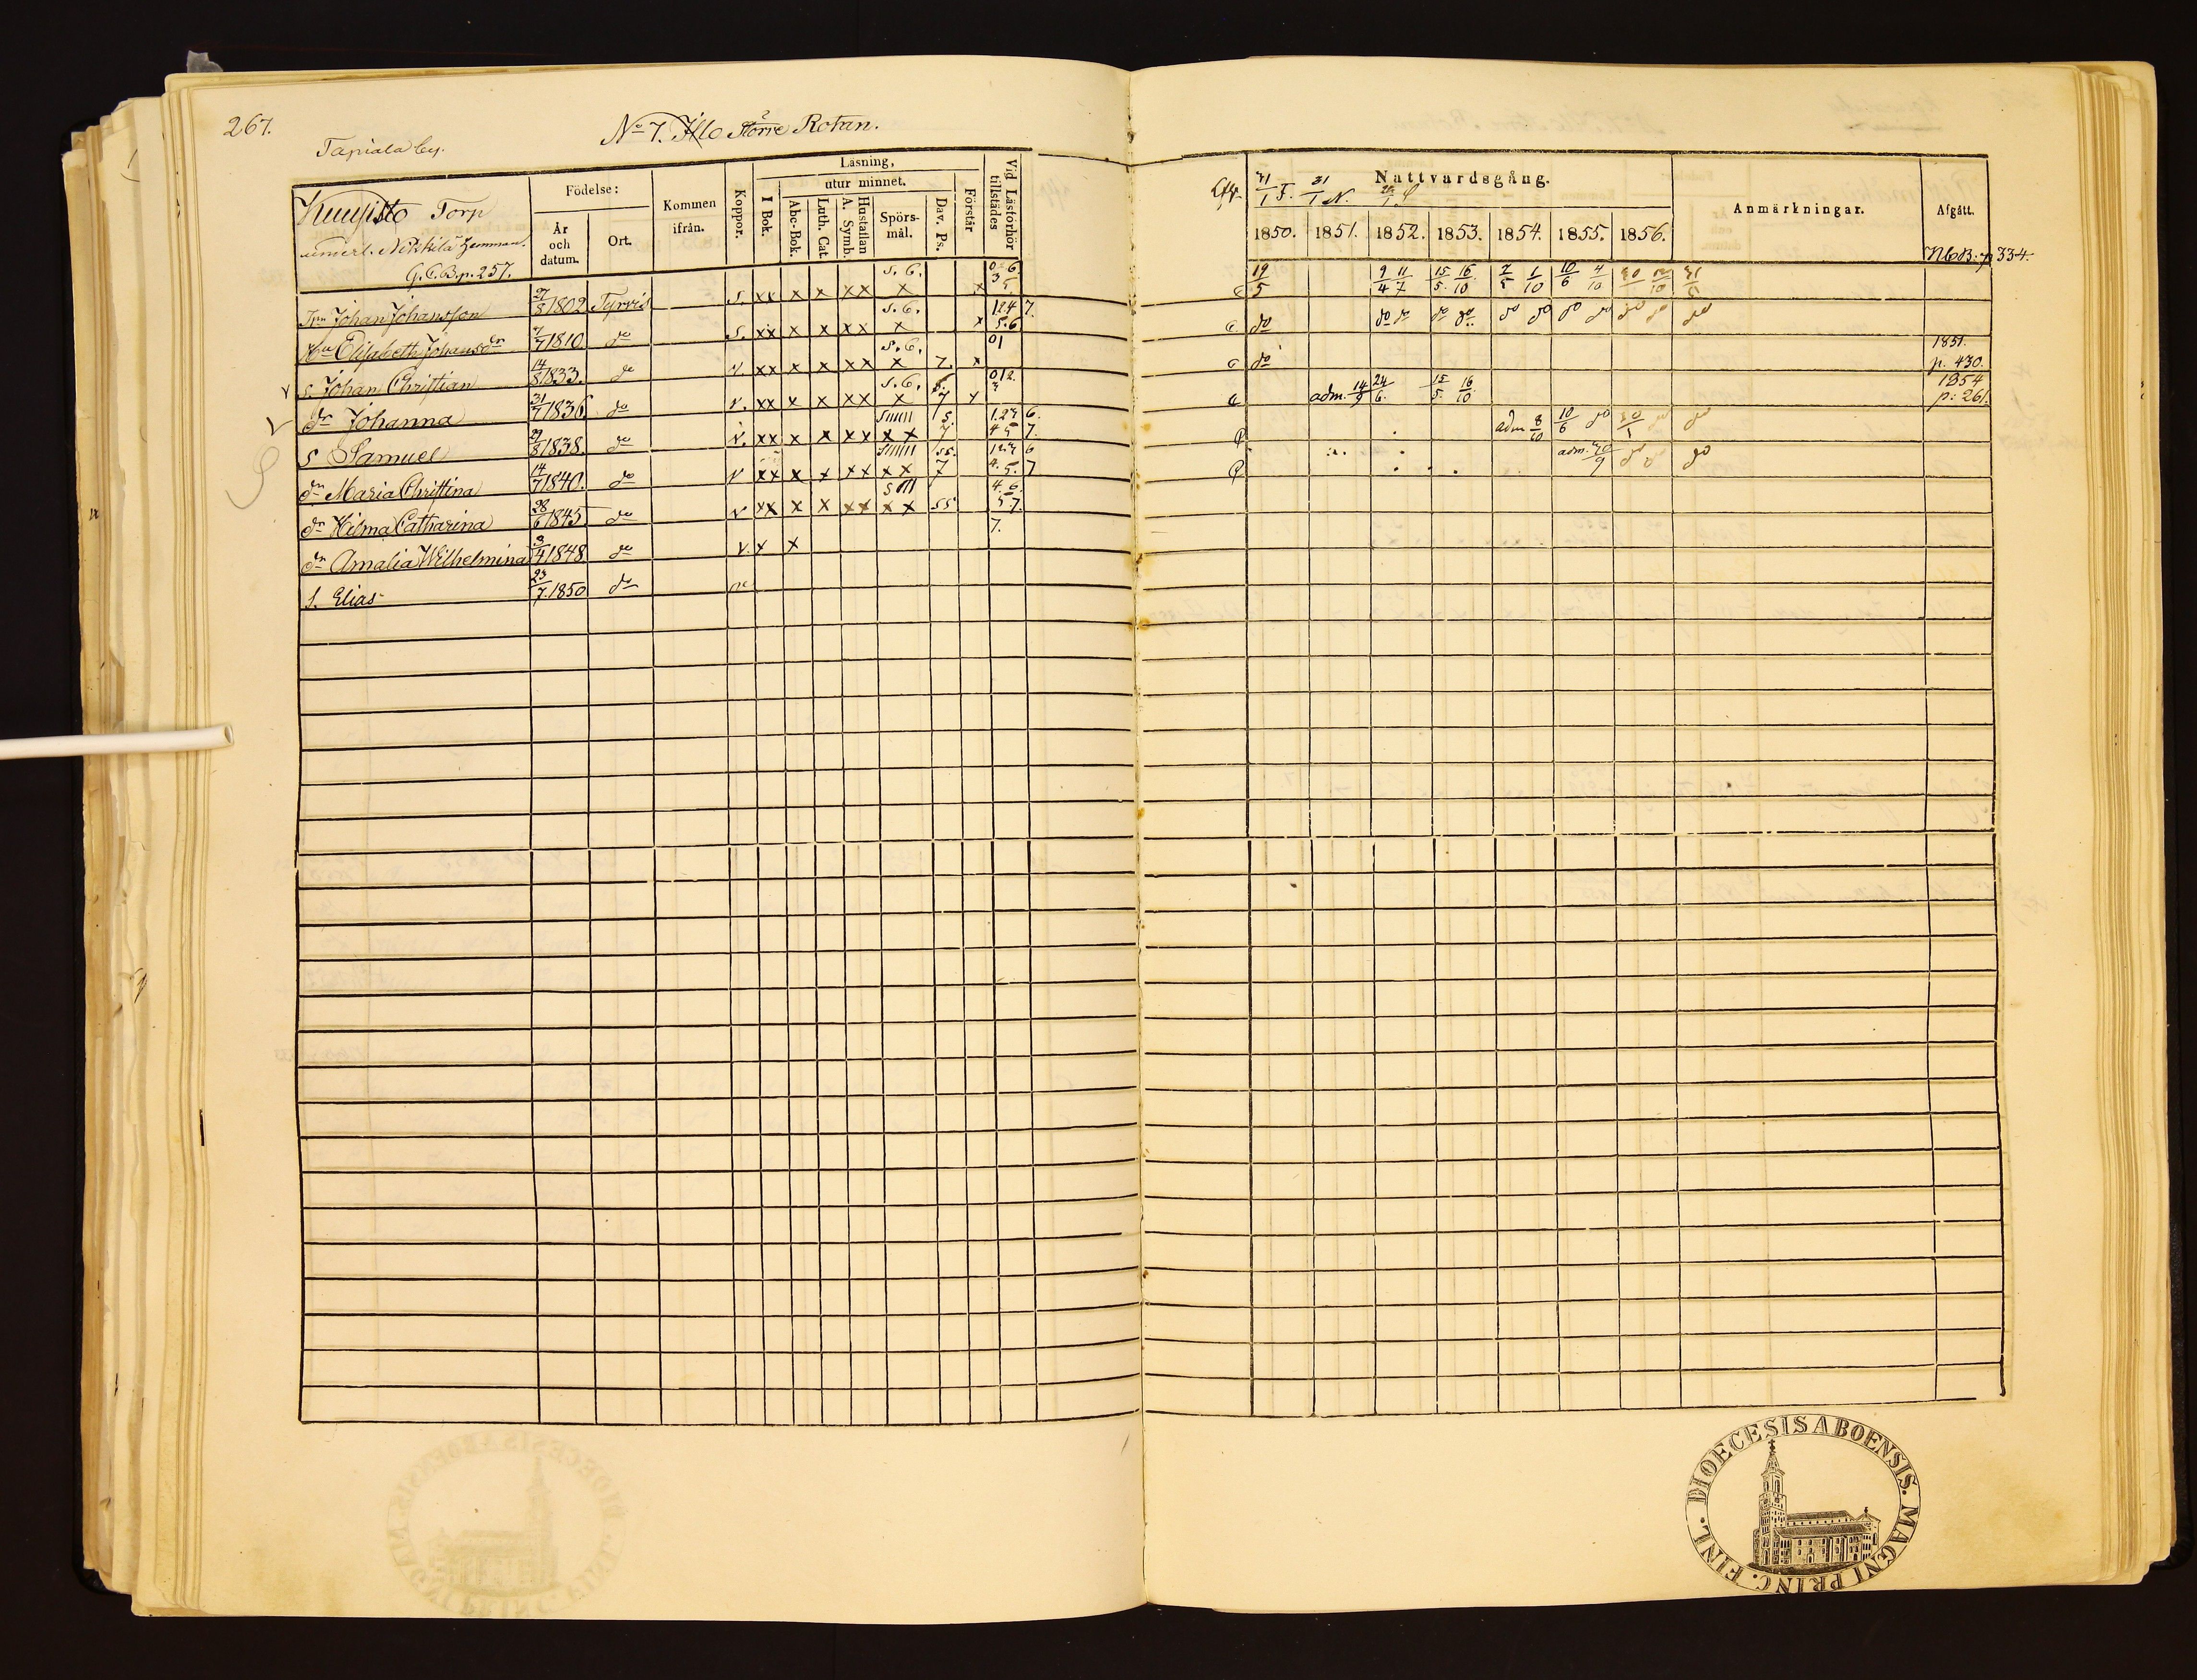 267.
Tapiala by.
No 7. Illo större Rotan.
Kuusisto Torp
underl. Nikkilä Hemman.
G.C.B.p. 257.
Födelse:
År och datum.
Ort.
Kommen ifrån.
Koppor.
Läsning,
I Bok.
utur minnet.
Abc-Bok.
Luth. Cat.
Hustaflan A. Symb.
Spörs-mål.
Dav. Ps.
Förstår
Vid Läsförhör tillstädes
Johan Johansson 27/8 1802 Tyrvis S. xx x x xx s.6. x x
Hu Elisabeth Johansdr 7/7 1810. do S. xx x x xx s.6. x x
s. Johan Christian 14/8 1833. do V. xx x x xx s.6. x 7. x
dr Johanna 31/7 1836 do V. xx x x xx s.6. x 7 x
s Samuel 27/8 1838. do V. xx x x xx xx 7
dr Maria Christina 14/7 1840. do V xx x x xx xx 7
dr Hilma Catharina 28/6 1845 do V xx x x xx xx
dr Amalia Wilhelmina 3/4 1848. do V. x x
s. Elias 23/7. 1850 do
Nattvardsgång.
31/1 F. 31/1 N.
1850. 1851. 1852. 1853. 1854. 1855. 1856.
Anmärkningar.
Afgått.
NbB. p 334.
19/5 9/4 11/7 15/5. 16/10 7/5 1/10 10/6 4/10
do do do do do do do do do do do do
do 1851. p. 430.
adm. 14/9 24/6. 15/5. 16/10 1854 p. 261.
adm 8/10 10/6 do do do
adm. do do do
DIOECESIS ABOENSIS. MAGNI PRINC. FINL.